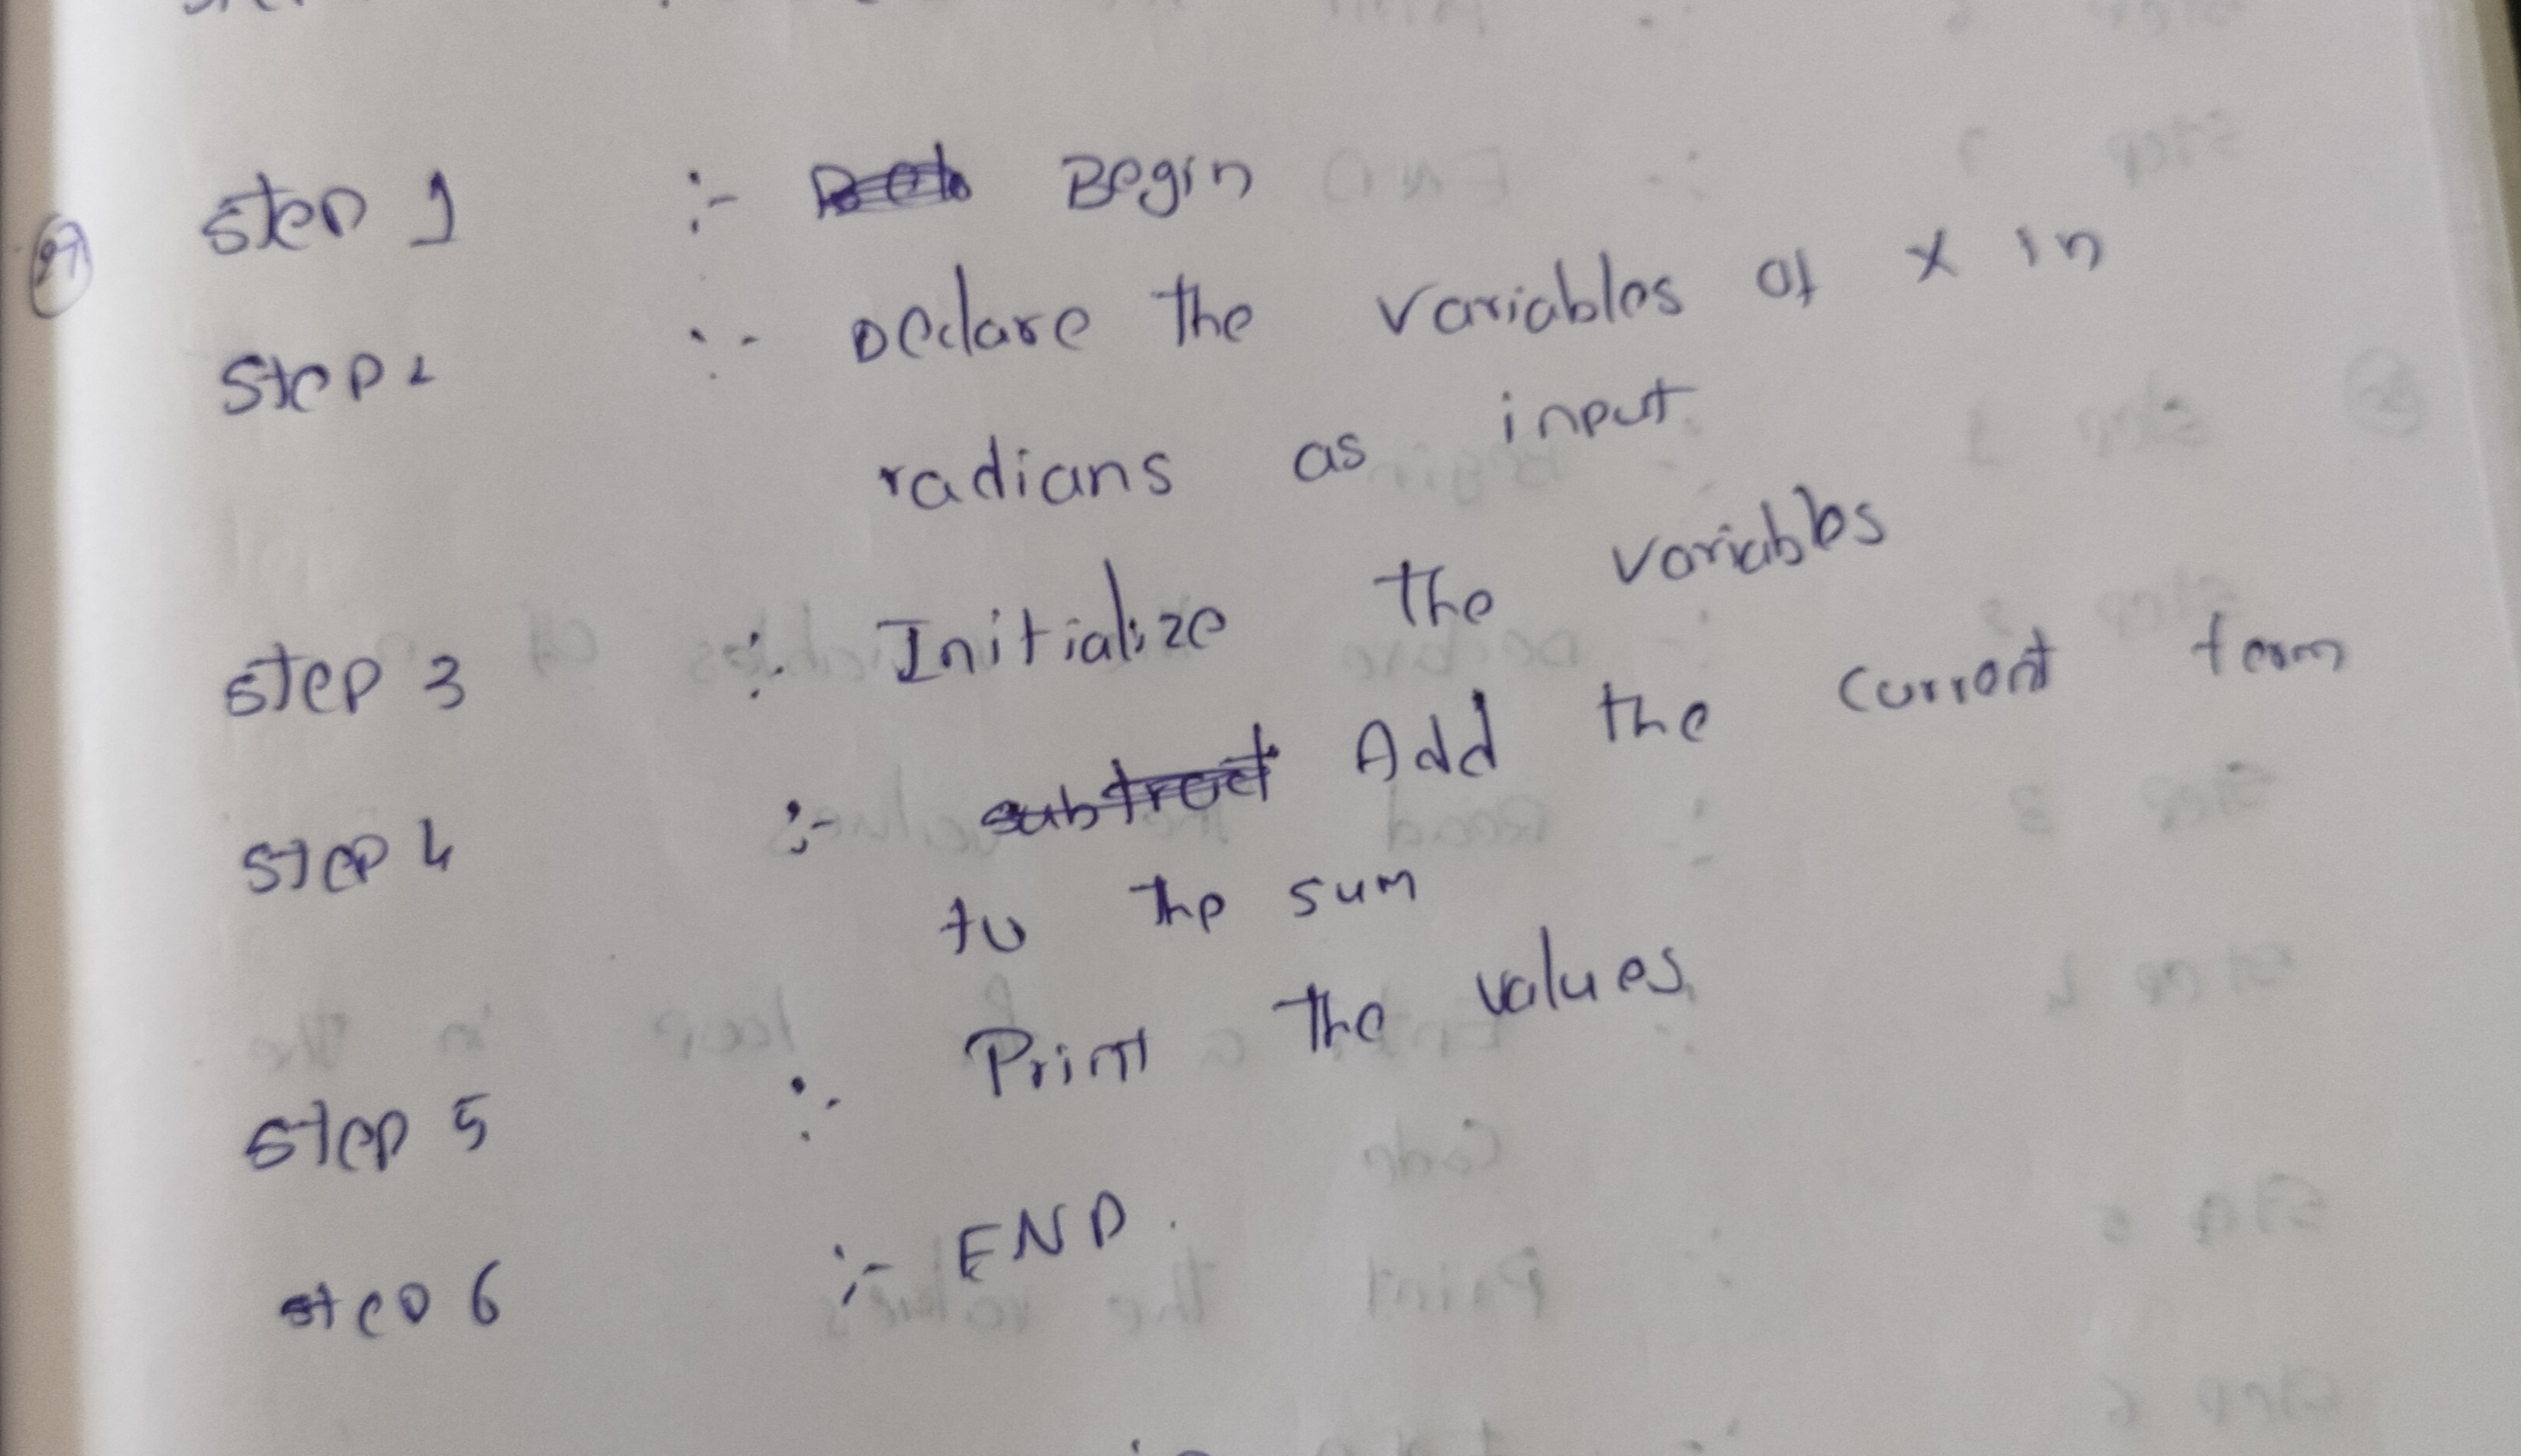 27 Step 1 :- Begin
Step 2 :- Declare the variables of x in
radians as input
Step 3 :- Initialize the variables
Step 4 :- subtract Add the current term
to the sum
Step 5 :- Print the values
Step 6 :- END.